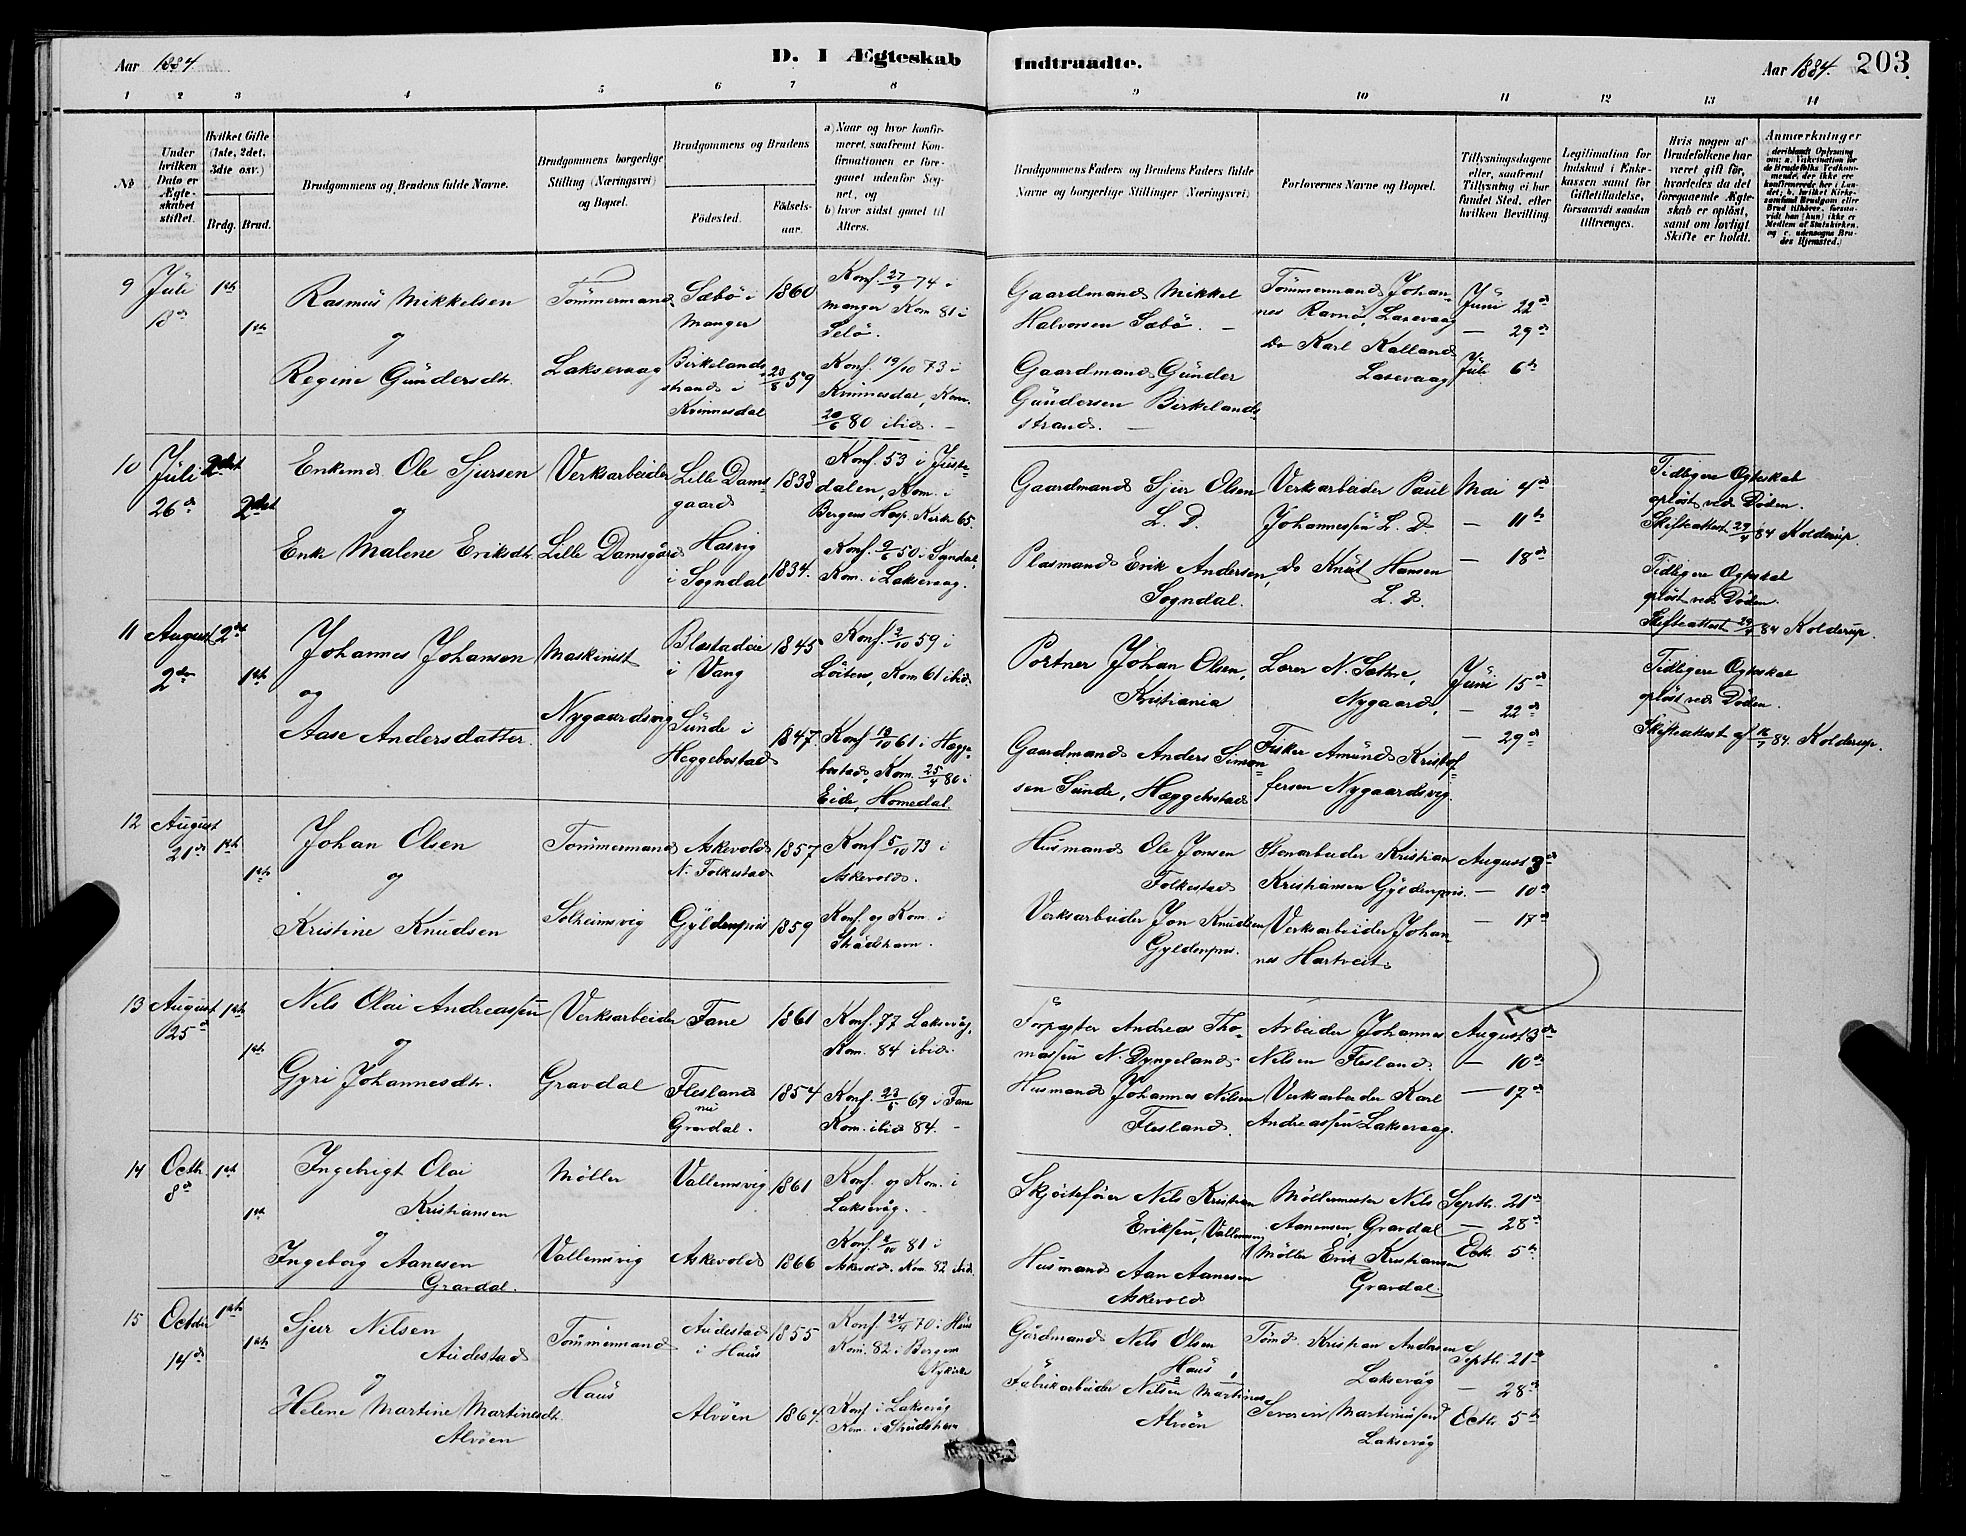 Aar 1884.
D. I Ægteskab
Indtraadte.
Aar 1884.
203
1 2 3 4 5 6 7 8
9 10 11 12 13 14
№
Under hvilken Dato er Ægteskabet stiftet.
Hvilket Gifte (1ste, 2det, 3dte osv.)
Brdg. Brud.
Brudgommens og Brudens fulde Navne.
Brudgommens borgerlige Stilling (Næringsvei) og Bopæl.
Brudgommens og Brudens
Fødested.
Fødselsaar.
a) Naar og hvor konfirmeret, saafremt Konfirmationen er foregaaet udenfor Sognet, og
b) hvor sidst gaaet til Alters.
Brudgommens Faders og Brudens Faders fulde Navne og borgerlige Stillinger (Næringsvei)
Forlovernes Navne og Bopæl.
Tillysningsdagene eller, saafremt Tillysning ei har fundet Sted, efter hvilken Bevilling.
Legitimation for Indskud i Enkekassen samt for Giftetilladelse, forsaavidt saadan tiltrænges.
Hvis nogen af Brudefolkene har været gift før, hvorledes da det foregaaende Ægteskab er opløst, samt om lovligt Skifte er holdt.
Anmærkninger
(deriblandt Oplysning om: a. Vakcination for de Brudefolks Vedkommende, der ikke ere konfirmerede her i Landet; b. hvilket Kirkesamfund Brudgom eller Brud tilhører, forsaavidt han (hun) ikke er Medlem af Statskirken, og c. udensogns Brudes Hjemsted.)
9 Juli 18de 1ste 1ste
Rasmus Mikkelsen
og
Regine Gundersdtr.
Tømmermand
Laksevaag
Sæbø i Manger 1860
Konf. 27/9 74 i Manger Kom 81 i Selø.
Birkelandsstrand i Kvinnesdal 23/8 59
Konf. 19/10 73 i Kvinnesdal, Kom. 20/6 80 ibid. –
Gaardmand Mikkel Halvorsen Sæbø. –
Gaardmand Gunder Gundersen Birkelandsstrand. –
Tømmermand Johannes Ravnø, Laxevaag
do Karl Kalland Laxevaag
Juni 22de
– 29de
Juli 6te
10 Juli 26de 2det 2det
Enkemd Ole Sjursen
og
Enke Malene Eriksdtr.
Verksarbeider
Lille Damsgård
Lille Damsgaard 1838
Konf. 53 i Justedalen, Kom. i Bergens Hosp. Kirke 65.
Hasvig i Sogndal 1834.
Konf. 9/6 50 i Sogndal, Kom. i Laksevaag.
Gaardmand Sjur Olsen L. D.
Plasmand Erik Andersen, Sogndal.
Verksarbeider Paul Johannessen L. D.
do Knut Hansen L. D.
Mai 4de
– 11te
– 18de
Tidligere Ogteskab opløst ved Døden.
Skifteattest 29/4 84 Kolderup.
Tidligere Ogteskab opløst ved Døden.
Skifteattest 29/4 84 Kolderup.
11 August 2den 2det 1ste
Johannes Johansen
og
Aase Andersdatter.
Maskinist
Nygaardsvig
Blæstadeie i Vang 1845
Konf. 2/10 59 i Løiten, Kom 61 ibid.
Sunde i Heggebostad 1847
Konf 19/10 61 i Heggebostad, Kom. 25/4 80 i Eide, Homedal.
Portner Johan Olsen, Kristiania
Gaardmand Anders Simonsen Sunde, Hæggebostad
Lærer N. Sætre, Nygaard,
Fisker Amund Kristoffersen Nygaardsvig.
Juni 15de
– 22de
– 29de
Tidligere Ogteskab opløst ved Døden.
Skifteattest af 16/7 84. Kolderup.
12 August 21de 1ste 1ste
Johan Olsen
og
Kristine Knudsen
Tømmermand
Solheimsvig
Askevold N. Folkestad 1857
Konf 5/10 73 i Askevold.
Gyldenpris 1859
Konf. og Kom. i Skudshavn.
Husmand Ole Jonsen Folkestad
Verksarbeider Jon Knudsen Gyldenpris.
Stenarbeider Kristian Kristiansen Gyldenpris.
Verksarbeider Johannes Hartveit.
August 3de
– 10de
– 17de
13 August 25de 1ste 1ste
Nils Olai Andreassen
og
Gyri Johannesdtr.
Verksarbeider
Gravdal
Fane 1861
Konf. 77 Laksevåg, Kom. 84 ibid.
Flesland nu Gravdal. 1854
Konf. 23/5 69 i Fane Kom. ibid 84. –
Forpagter Andreas Thomassen N. Dyngeland.
Husmand Johannes Nilsen Flesland.
Arbeider Johannes Nilsen Flesland.
Verksarbeider Karl Andreassen Laksevaag.
August 3de
– 10de
– 17de
14 Octbr. 8de 1ste 1ste
Ingebrigt Olai Kristiansen
og
Ingeborg Aanesen Gravdal.
Møller
Vallemsvig
Vallemsvig 1861
Konf. og Kom. i Laksevåg.
Askevold 1866
Konf. 2/10 81 i Askevold. Kom. 82 ibid.
Skjøitefører Nils Kristian Eriksen, Vallemsvig
Husmand Aan Aanesen Askevold
Møllermester Nils Aanensen, Gravdal
Møller Erik Kristiansen Gravdal.
Septbr. 21de
– 28de
Octr. 5te
15 Octbr 14de 1ste 1ste
Sjur Nilsen Audestad
og
Helene Martine Martinesdt. Alvøen
Tømmermand
Haus
Audestad i Haus 1855
Konf. 24/4 70 i Haus Kom. 82 i Bergens Nykirke
Alvøen 1864.
Konf i Laksevåg Kom. i Skudshavn
Gårdmand Nils Olsen Haus
Fabrikarbeider Nilsen Martines Alvøen
Tømd. Kristian Andersen Laksevåg
Severin Martinussen Laksevåg
Septbr. 21de
– 28de
Octbr. 5te